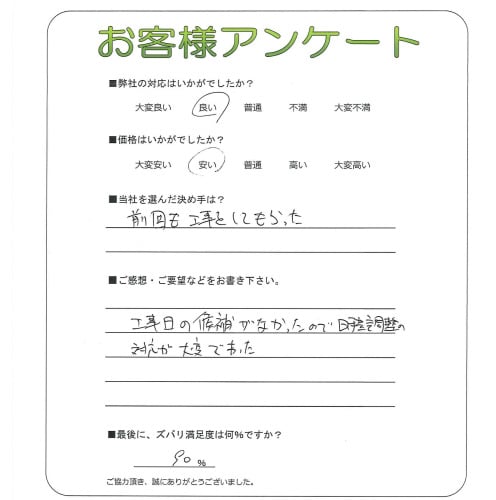 お客様アンケート
■弊社の対応はいかがでしたか?
大変良い 良い 普通 不満 大変不満
■価格はいかがでしたか?
大変安い 安い 普通 高い 大変高い
■当社を選んだ決め手は?
前回も工事をしてもらった
■ご感想・ご要望などをお書き下さい。
工事日の候補がなかったので日程調整の
対応が大変でした
■最後に、ズバリ満足度は何%ですか?
90 %
ご協力頂き、誠にありがとうございました。